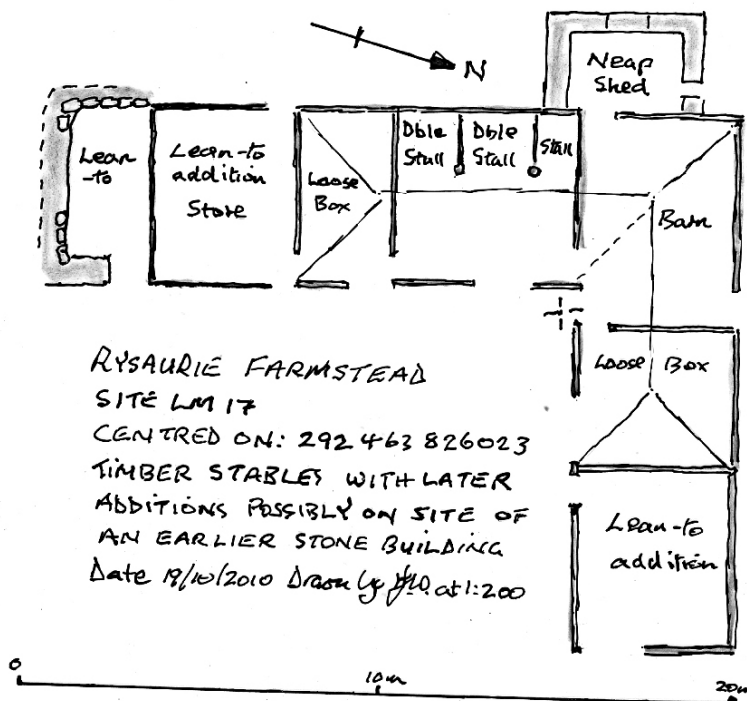 N
Neap
Shed
Lean
-to
Lean-to
addition
Store
Loose
Box
Dble
Stall
Dble
Stall
Stall
Barn
Loose Box
Lean-to
addition
RYSAURIE FARMSTEAD
SITE LM 17
CENTRED ON: 292 463 826023
TIMBER STABLES WITH LATER
ADDITIONS POSSIBLY ON SITE OF
AN EARLIER STONE BUILDING
Date 19/10/2010 Drawn by at 1:200
0
10m
20m